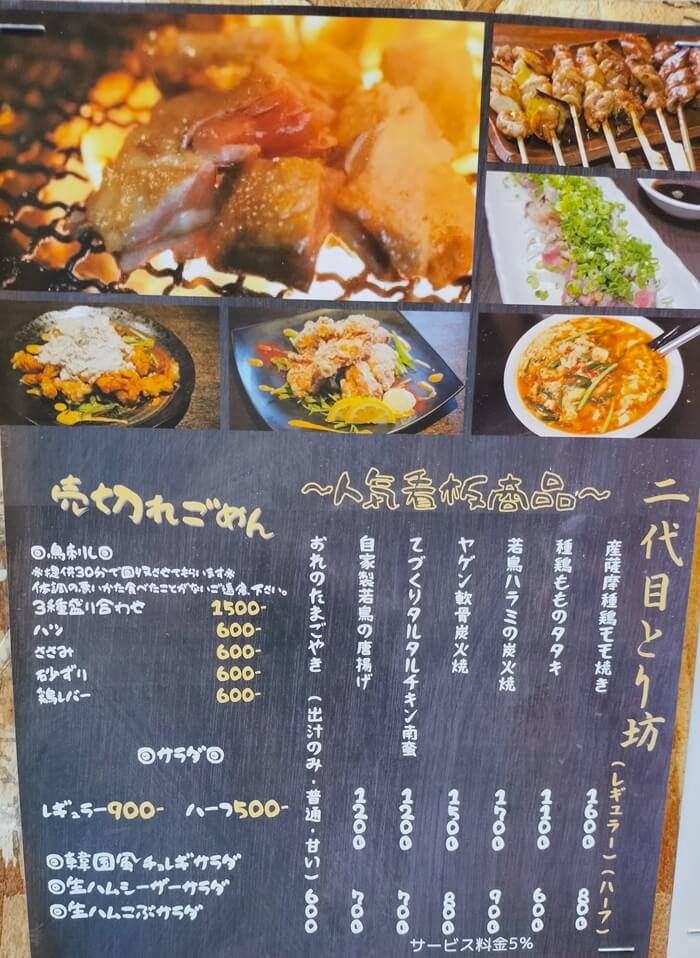 二代目とり坊
～人気看板商品～
（レギュラー）（ハーフ）
産薩摩種鶏モモ焼き 1600 800
種鶏もものタタキ 1100 600
若鳥ハラミの炭火焼 1700 900
ヤゲン軟骨炭火焼 1500 800
てづくりタルタルチキン南蛮 1200 700
自家製若鳥の唐揚げ 1200 700
おれのたまごやき （出汁のみ・普通・甘い） 600
売切れごめん
◎鳥刺し◎
※提供30分で回収させてもらいます※
体調の悪いかた食べたことがないご遠慮下さい。
3種盛り合わせ 1500-
ハツ 600-
ささみ 600-
砂ずり 600-
鶏レバー 600-
◎サラダ◎
レギュラー900- ハーフ500-
◎韓国風チョレギサラダ
◎生ハムシーザーサラダ
◎生ハムこぶサラダ
サービス料金5%